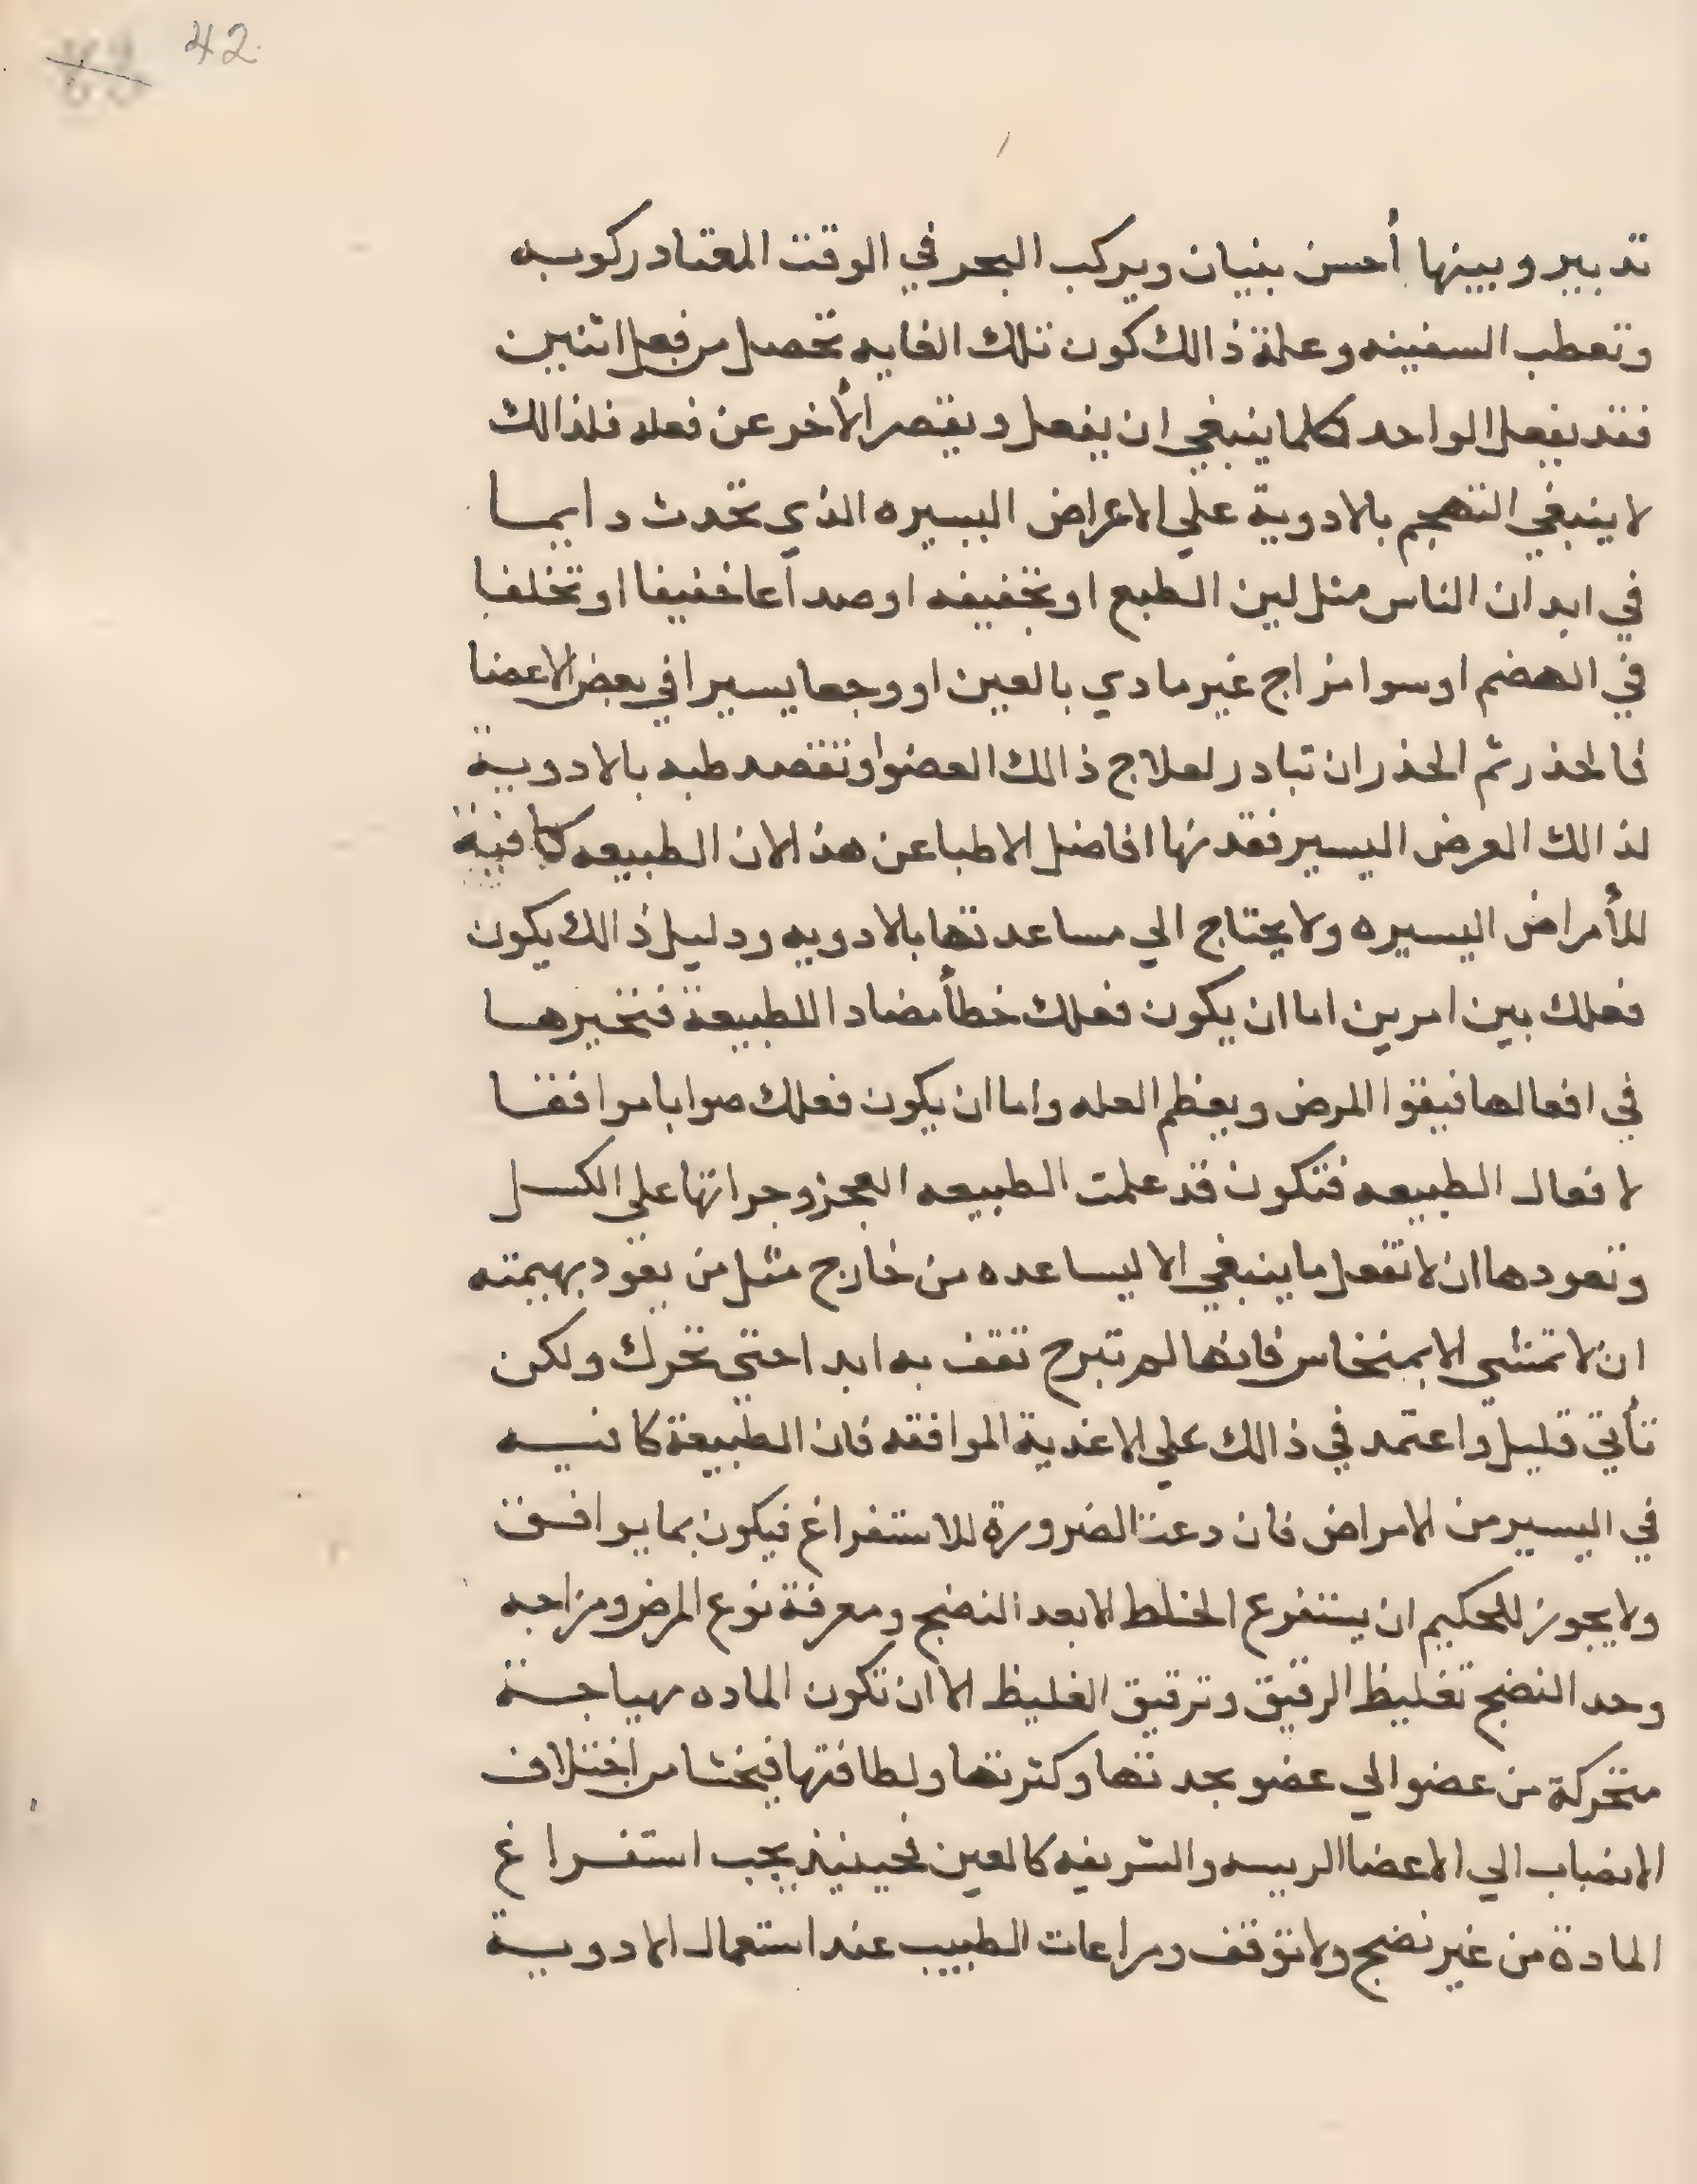 42
تدبير وبينها أحسن بنيان ويركب البحر في الوقت المعتاد ركوبه
وتعطب السفينه وعلة ذالك كون تلك الغايه تحصل من فعل اثنين
فقد يفعل الواحد كلما ينبغي ان يفعل ويقصر الأخر عن فعله فلذالك
لا ينبغي التهجم بالادوية علي الاعراض اليسيره الذي تحدث دايما
في ابدان الناس مثل لين الطبع او تجفيفه او صداعا خفيفا او تخلفا
في الهضم او سوا مزاج غير مادي بالعين او وجعا يسيرا في بعض الاعضا
فالحذر ثم الحذر ان تبادر لعلاج ذالك العضو او تقصد طبه بالادوية
لذالك العرض اليسير فقد نها افاضل الاطبا عن هذا لان الطبيعه كافية
للأمراض اليسيره ولا يحتاج الي مساعدتها بالادويه ودليل ذالك يكون
فعلك بين امرين اما ان يكون فعلك خطأ مضادا للطبيعة فتخيرها
في افعالها فيقوا المرض ويعظم العله واما ان يكون فعلك صوابا موافقا
لافعال الطبيعه فتكون قد علمت الطبيعه العجز وجراتها علي الكسل
وتعودها ان لا تفعل ما ينبغي الا ليساعده من خارج مثل من يعود بهيمته
ان لا تمشي الا بمنخاس فانها لم تبرح تقف به ابدا حتي تحرك ولكن
تأني قليل واعتمد في ذالك علي الاغدية الموافقه فان الطبيعة كافيه
في اليسير من الامراض فان دعت الضرورة للاستفراغ فيكون بما يوافق
ولا يجوز للحكيم ان يستفرغ الخلط الا بعد النضج ومعرفة نوع المرض ومزاجه
وحد النضج تغليظ الرقيق وترقيق الغليظ الا ان تكون الماده مهياجة
متحركة من عضو الي عضو بحدتها وكثرتها ولطافتها فيخشا من اختلاف
الانصباب الي الاعضا الرييسه والشريفه كالعين فحينيذ يجب استفراغ
المادة من غير نضج ولا توقف ومراعات الطبيب عند استعمال الادوية